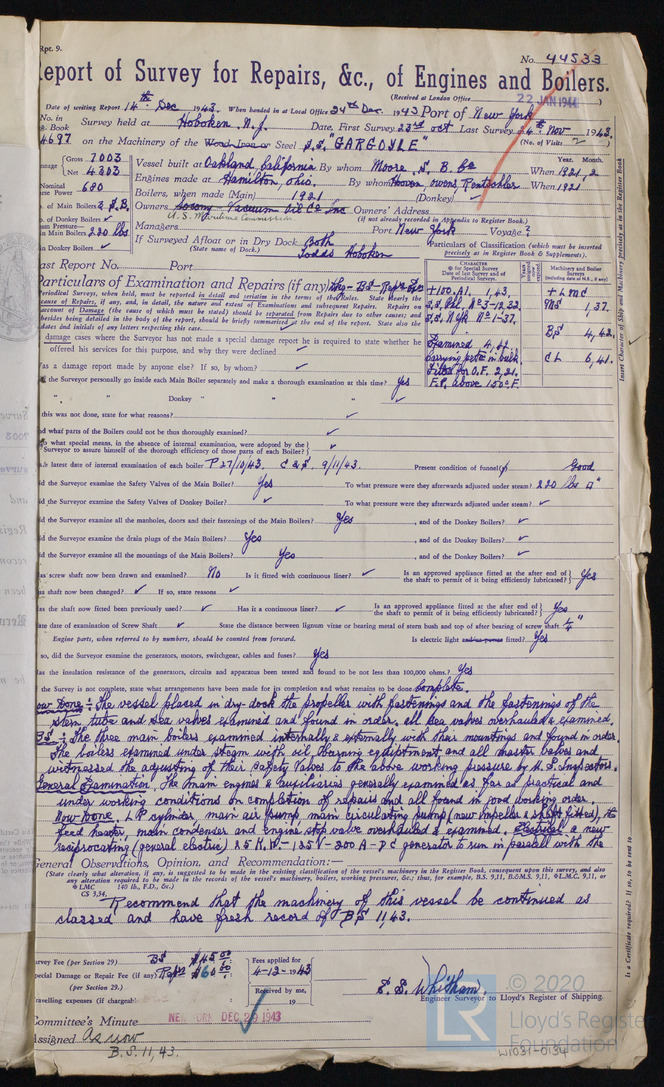 Rpt. 9.
No. 44533
Report of Survey for Repairs, &c., of Engines and Boilers.
(Received at London Office 22 JAN 1944)
Date of writing Report 14th Dec 1943. When handed in at Local Office 24th Dec. 1943 Port of New York
No. in Survey held at Hoboken, N.J. Date, First Survey 23rd Oct Last Survey 4th Nov 1943.
Book
4697 on the Machinery of the Wood, Iron or Steel S.S. "GARGOYLE" (No. of Visits 2)
Gross 7003
Net 4303
Vessel built at Oakland, California By whom Moore S. B. Co When 1921, 2
Year. Month.
Nominal Horse Power 680
Engines made at Hamilton, Ohio. By whom Hooven Owens Rentschler When 1921
Boilers, when made (Main) 1921 (Donkey)
No. of Main Boilers 3 S.B.
Owners Socony-Vacuum Oil Co Inc Owners' Address
U.S. Maritime Commission
(if not already recorded in Appendix to Register Book.)
No. of Donkey Boilers
Managers Port New York Voyage?
in Main Boilers 220 lbs
If Surveyed Afloat or in Dry Dock Both
(State name of Dock.) Todds Hoboken
in Donkey Boilers
Particulars of Classification (which must be inserted precisely as in Register Book & Supplements).
Last Report No. Port
Particulars of Examination and Repairs (if any) BS Reps
Periodical Surveys, when held, must be reported in detail and seriatim in terms of the Rules. State clearly the
cause of Repairs, if any, and, in detail, the nature and extent of Examinations and subsequent Repairs. Repairs on
account of Damage (the cause of which must be stated) should be separated from Repairs due to other causes; and
besides being detailed in the body of the report, should be briefly summarised at the end of the report. State also the
dates and initials of any letters respecting this case.
CHARACTER
for Special Survey
Date of last Survey and of Periodical Surveys.
Machinery and Boiler Surveys
(including date of N.B., if any)
+100.A1. 1,43.
+LMC
MS 1,37.
S.S. N.Yk No 1-37.
BS 4,42.
Examined 4,41.
CL 6,41.
Carrying petm in bulk.
Fitted for O.F. 2,21.
F.P. above 150°F.
damage cases where the Surveyor has not made a special damage report he is required to state whether he
offered his services for this purpose, and why they were declined
Was a damage report made by anyone else? If so, by whom?
Did the Surveyor personally go inside each Main Boiler separately and make a thorough examination at this time? Yes
" " Donkey " "
If this was not done, state for what reasons?
And what parts of the Boilers could not be thus thoroughly examined?
Also what special means, in the absence of internal examination, were adopted by the
Surveyor to assure himself of the thorough efficiency of those parts of each Boiler?
State latest date of internal examination of each boiler P 27/10/43, C & S. 9/11/43. Present condition of funnel(s) Good
Did the Surveyor examine the Safety Valves of the Main Boiler? Yes To what pressure were they afterwards adjusted under steam? 220 lbs □"
Did the Surveyor examine the Safety Valves of Donkey Boiler? To what pressure were they afterwards adjusted under steam?
Did the Surveyor examine all the manholes, doors and their fastenings of the Main Boilers? Yes, and of the Donkey Boilers?
Did the Surveyor examine the drain plugs of the Main Boilers? Yes, and of the Donkey Boilers?
Did the Surveyor examine all the mountings of the Main Boilers? Yes, and of the Donkey Boilers?
Has screw shaft now been drawn and examined? No Is it fitted with continuous liner? Is an approved appliance fitted at the after end of the shaft to permit of it being efficiently lubricated? Yes
Has shaft now been changed? If so, state reasons
Has the shaft now fitted been previously used? Has it a continuous liner? Is an approved appliance fitted at the after end of the shaft to permit of it being efficiently lubricated? Yes
State date of examination of Screw Shaft State the distance between lignum vitae or bearing metal of stern bush and top of after bearing of screw shaft 1/4"
Engine parts, when referred to by numbers, should be counted from forward. Is electric light and/or power fitted? Yes
If so, did the Surveyor examine the generators, motors, switchgear, cables and fuses? Yes
Has the insulation resistance of the generators, circuits and apparatus been tested and found to be not less than 100,000 ohms? Yes
If the Survey is not complete, state what arrangements have been made for its completion and what remains to be done Complete.
Now Done:- The vessel placed in dry-dock the propeller with fastenings and the fastenings of the
stern tube and sea valves examined and found in order. All sea valves overhauled & examined.
BS:- The three main boilers examined internally & externally with their mountings and found in order.
The boilers examined under steam with oil burning equiptment and all master valves and
witnessed the adjusting of their safety valves to the above working pressure by U.S. Inspectors.
General Examination. The main engines & auxiliaries generally examined as far as practical and
under working conditions on completion of repairs and all found in good working order.
Now Done. LP cylinder, main air pump, main circulating pump (new impeller & shaft fitted), the
feed heater, main condenser and engine stop valve overhauled & examined. Electrical a new
reciprocating (general electric) 25 K.W.-125V-200A-DC generator to run in parallel with the
General Observations, Opinion, and Recommendation:—
(State clearly what alteration, if any, is suggested to be made in the existing classification of the vessel's machinery in the Register Book, consequent upon this survey, and also
any alteration required to be made in the records of the vessel's machinery, boilers, working pressures, &c.; thus, for example, B.S. 9,11, B.&M.S. 9,11, +L.M.C. 9,11, or
+LMC 140 lb., F.D., &c.)
CS 3,34,
I recommend that the machinery of this vessel be continued as
classed and have fresh record of BS 11,43.
Survey Fee (per Section 29) BS $45.00
Fees applied for
4-12-1943
Special Damage or Repair Fee (if any) Reps $60.00
(per Section 29.)
Received by me,
19
Travelling expenses (if chargeable)
Engineer Surveyor to Lloyd's Register of Shipping.
Committee's Minute NEW YORK DEC 29 1943
Assigned As now
B.S. 11,43.
Insert Character of Ship and Machinery precisely as in the Register Book
Is a Certificate required? If so, to be sent to
© 2020
Lloyd's Register
Foundation
W1031-0134